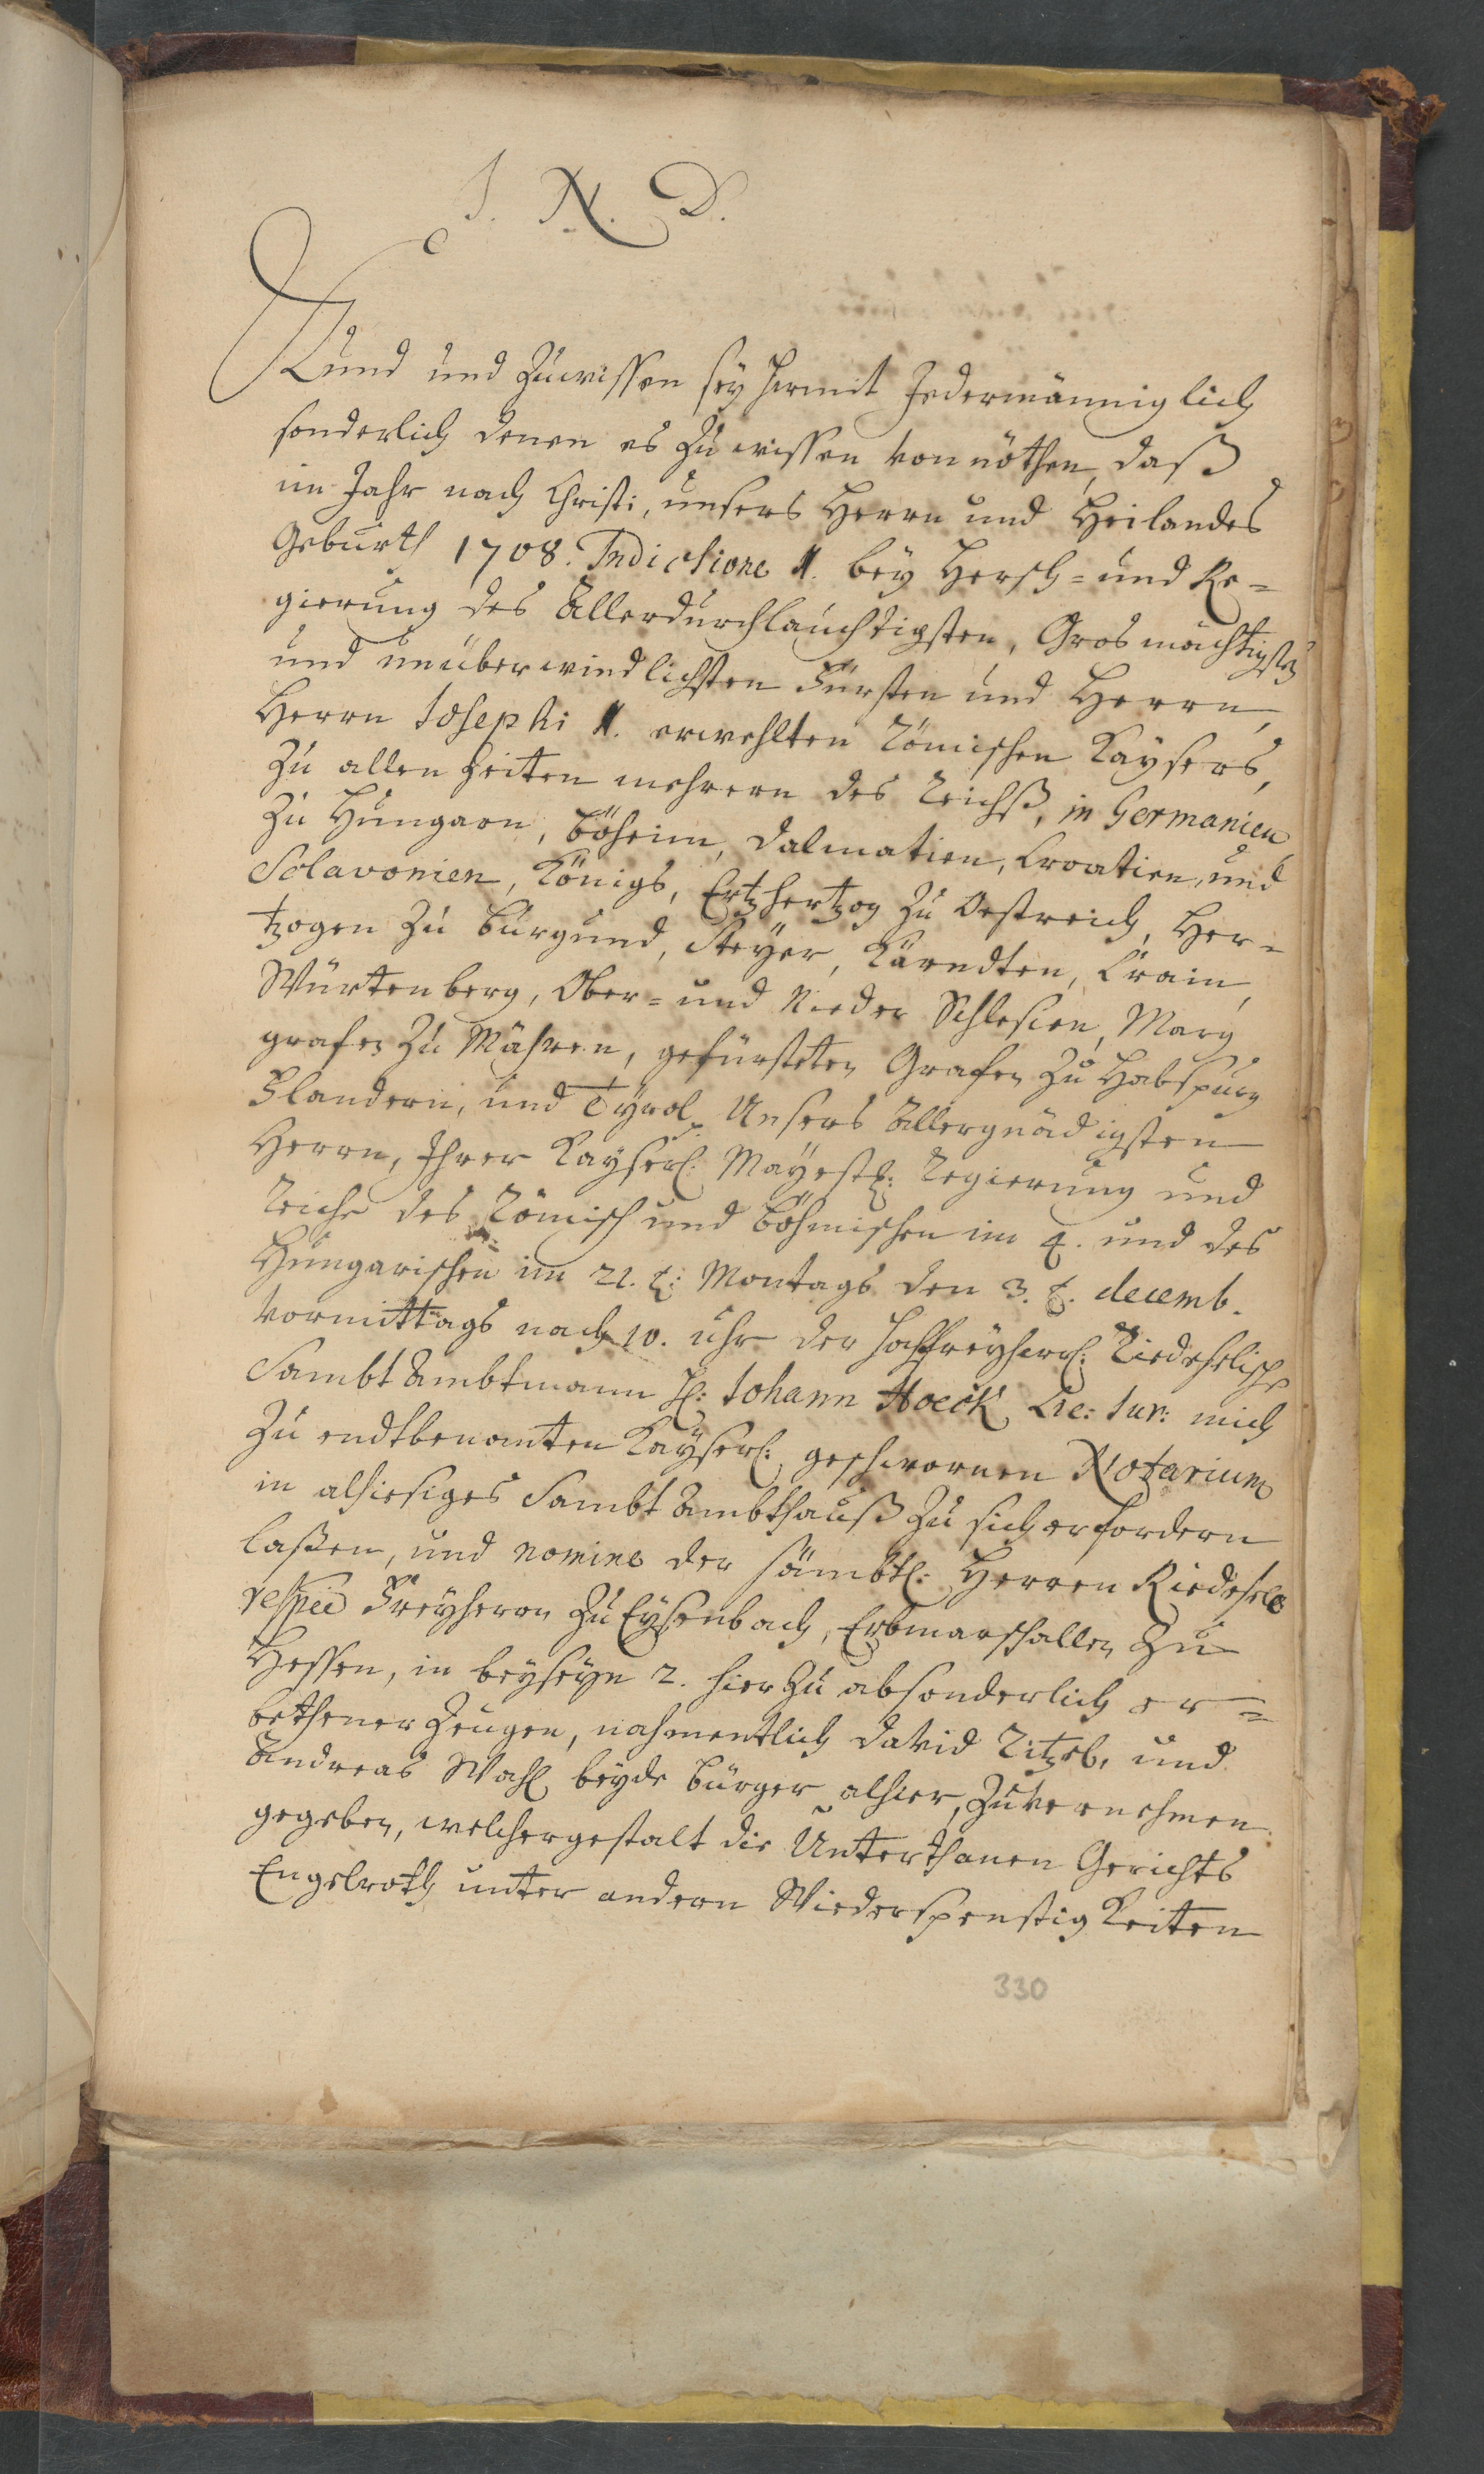 I. N. D.
Kund und Zuwissen sey hiermit Jedermänniglich
sonderlich denen es Zu wissen vonnöthen, daß
im Jahr nach Christi, unsers Herrn und Heilandes
Geburth 1708. Indictione 1. bey Hersch= und Re=
gierung des Allerdurchlauchtigsten, Grosmächtigsten
und unüberwindlichsten Fürsten und Herrn,
Herrn Josephi 1. erwehlten Römischen Kaysers,
Zu allen Zeiten mehrern des Reichß, in Germanien
Zu Hungarn, Böheim, Dalmatien, Croatien, und
Sclavonien, Königs, Ertzhertzog Zu Oestreich, Her=
tzogen Zu Burgund, Steyer, Kärndten, Crain,
Würtenberg, Ober= und Nieder Schlesien, Marg
grafen Zu Mähren, gefürsteten Grafen Zu Habspurg
Flandern, und Tyrol, Unsers Allergnädigsten
Herrn, Ihrer Kayserl: Mayestt: Regierung und
Reiche des Römisch und Böhmischen im 4. und des
Hungarischen im 21. t: Montags den 3. t. decemb.
Vormittags nach 10. uhr der hochfreyherrl: Riedeselische
Sambt Ambtmann H: Johann Hoeck Lic: Jur: mich
Zu endtbenamten Kayserl: geschwornen Notarium
in alhiesiges Sambt Ambthauß Zu sich erfordern
laßen, und nomine der sämbtl: Herren Riedesele
respée Freyherrn Zu Eysenbach, Erbmarschallen Zu
Hessen, in beyseyn 2. hierZu absonderlich er=
bethener Zeugen, nahmentlich David und
Andreas Wahl beyde Bürger alhier, Zuvernehmen
gegeben, welchergestalt die Unterthanen Gerichts
Engelroth unter andern Wiederspenstigkeiten
330